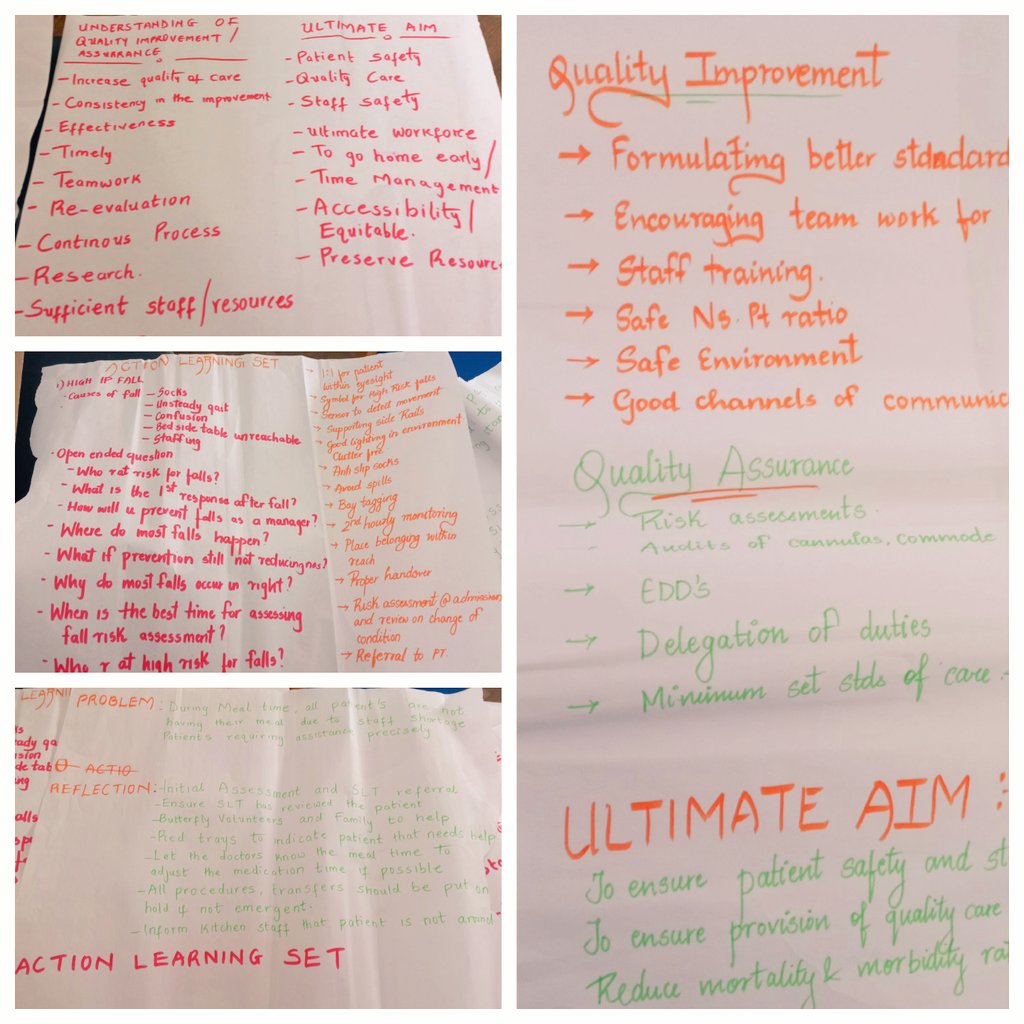 UNDERSTANDING OF
QUALITY IMPROVEMENT/
ASSURANCE
- Increase quality of care
- Consistency in the improvement
- Effectiveness
- Timely
- Teamwork
- Re-evaluation
- Continous Process
- Research.
- Sufficient staff/resources
ULTIMATE AIM
- Patient safety
- Quality Care
- Staff safety
- Ultimate workforce
- To go home early/
- Time Management
- Accessibility/
Equitable.
- Preserve Resourc
ACTION LEARNING SET
1) HIGH IP FALL
• Causes of fall - Socks
- Unsteady gait
- Confusion
- Bed side table unreachable
- Staffing
• Open ended question
- Who r at risk for falls?
- What is the 1st response after fall?
- How will u prevent falls as a manager?
- Where do most falls happen?
- What if prevention still not reducing
- Why do most falls occur in right?
- When is the best time for assessing
fall risk assessment?
- Who r at high risk for falls?
→ 1:1 for patient
within eyesight
→ Symbol for High Risk falls
→ Sensor to detect movement
→ Supporting side Rails
→ Good lighting in environment
Clutter free
→ Anti slip socks
→ Avoid spills
→ Bay tagging
→ 2nd hourly monitoring
→ Place belonging within
reach
→ Proper handover
→ Risk assessment @ admission
and review on change of
condition
→ Referral to PT.
LEARNI
PROBLEM: During Meal time, all patient's are not
having their meal due to staff shortage
Patients requiring assistance precisely
ACTIO
REFLECTION: - Initial Assessment and SLT referral
- Ensure SLT has reviewed the patient
- Butterfly Volunteers and Family to help
- Red trays to indicate patient that needs help
- Let the doctors know the meal time to
adjust the medication time if possible
- All procedures, transfers should be put on
hold if not emergent.
- Inform Kitchen staff that patient is not around
ACTION LEARNING SET
Quality Improvement
→ Formulating better standard
→ Encouraging team work for
→ Staff training.
→ Safe Ns. Pt ratio
→ Safe Environment
→ Good channels of communic
Quality Assurance
→ Risk assessments.
- Audits of cannulas, commode
→ EDD's
→ Delegation of duties
→ Minimum set stds of care.
ULTIMATE AIM :
To ensure patient safety and st
To ensure provision of quality care
Reduce mortality & morbidity ra